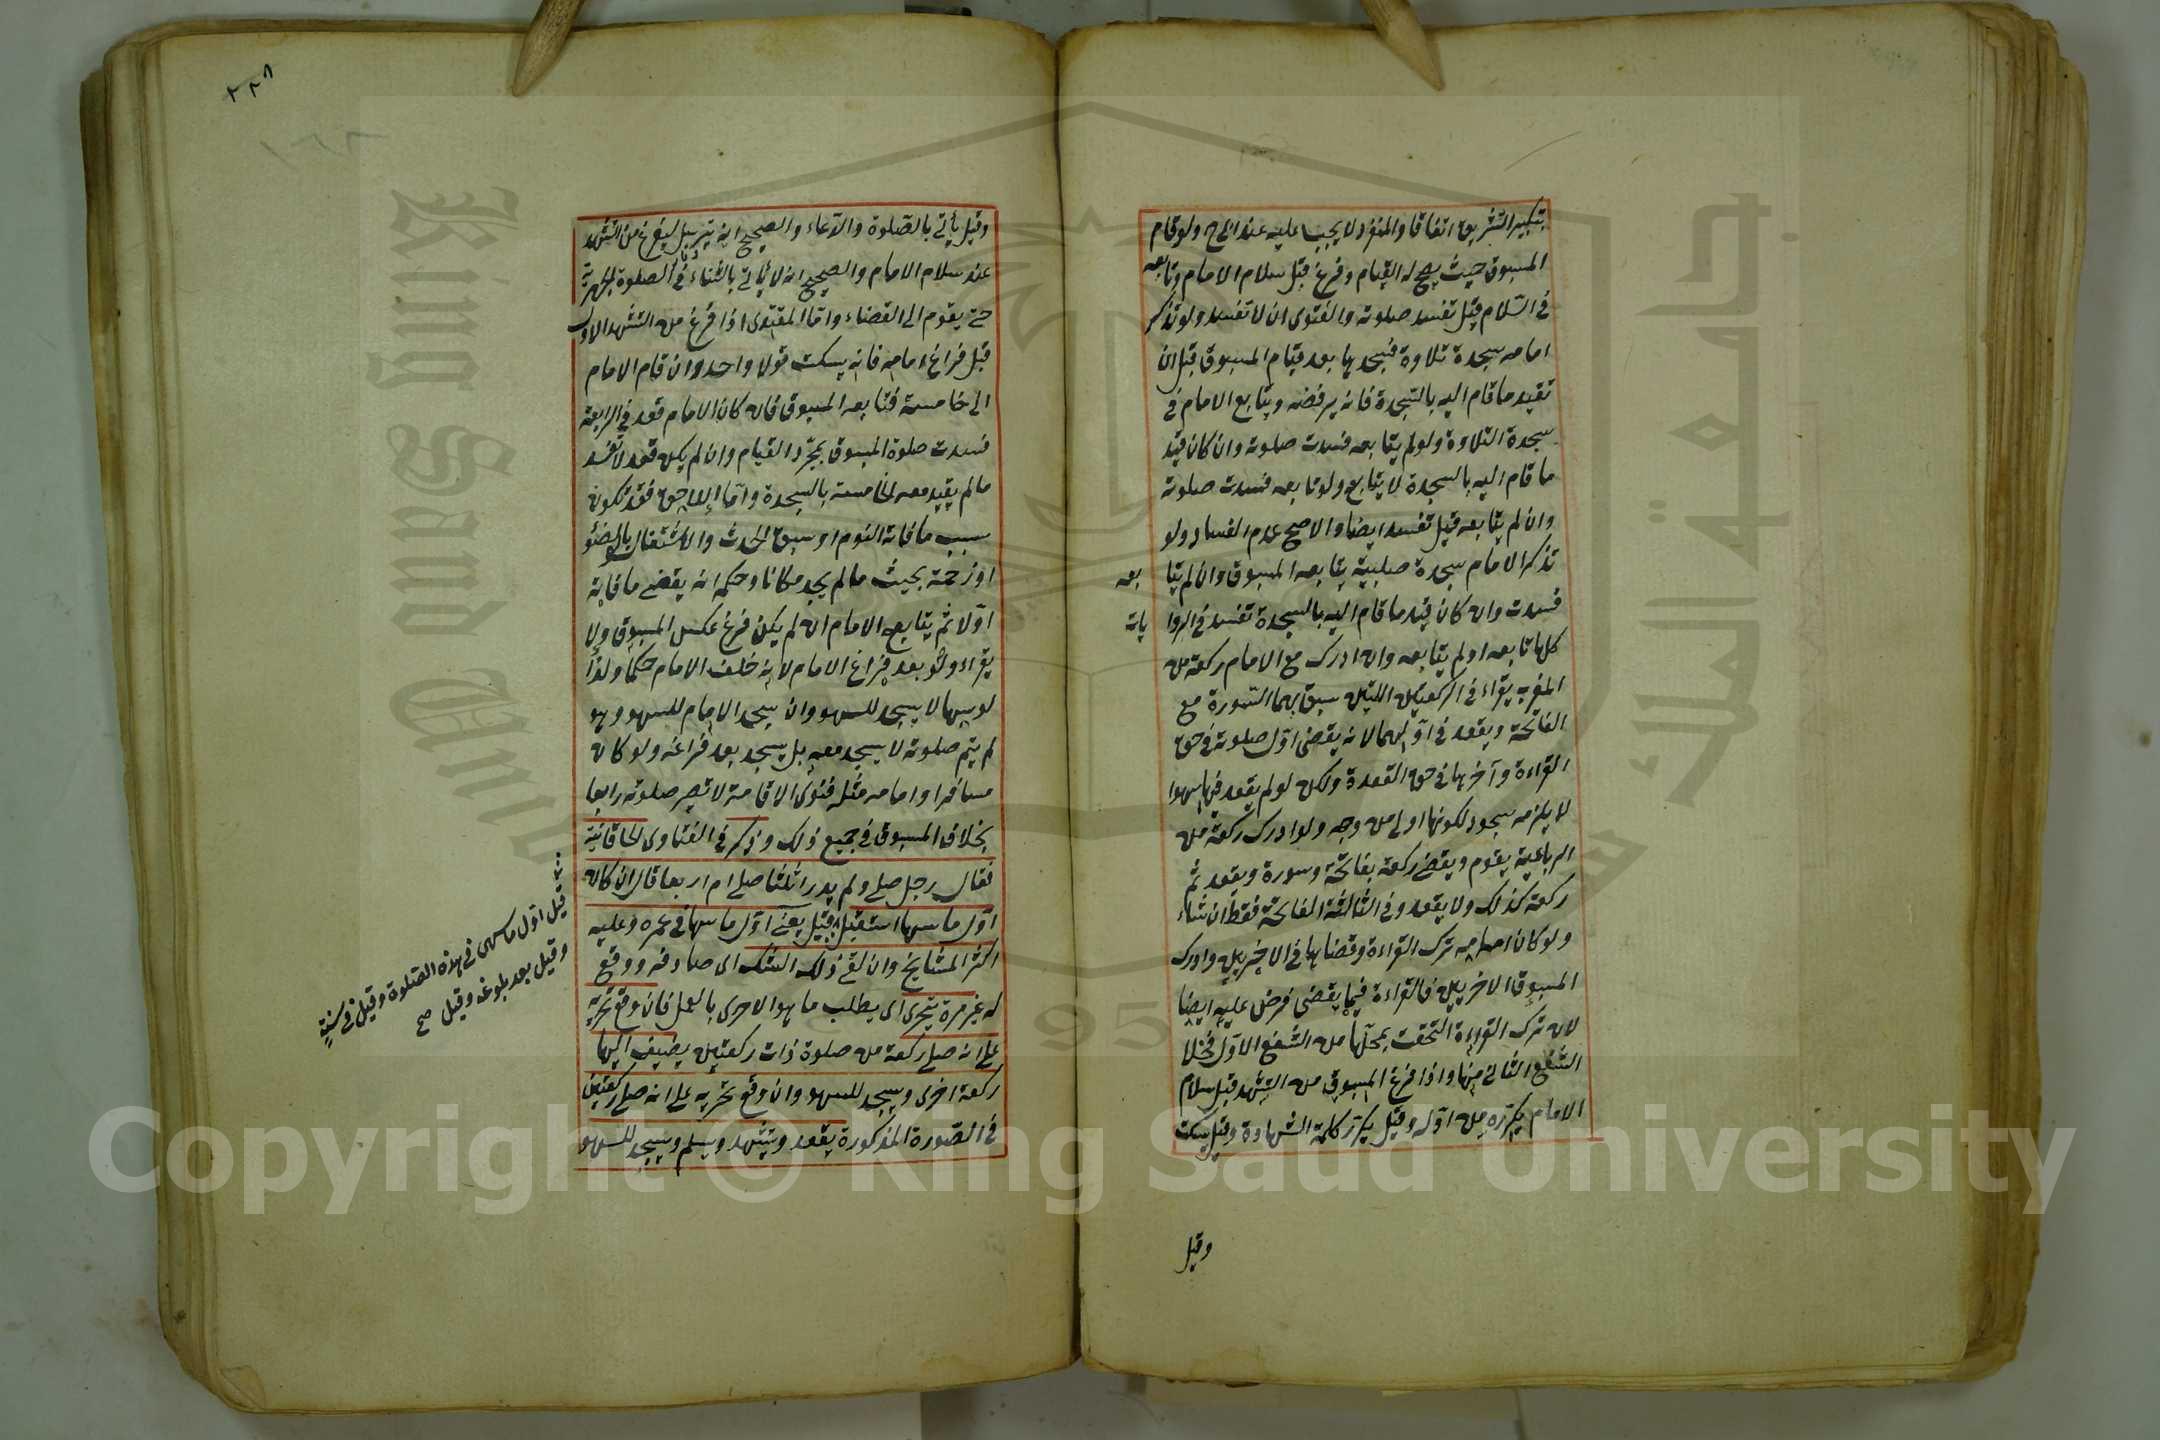 بتكبير التشريق اتفاقا والمنفرد لا يجب عليه عند الامام ح ولو قام
المسبوق حيث يصح له القيام وفرغ قبل سلام الامام وتابعه
في السلام قيل تفسد صلوته والفتوى ان لا تفسد ولو تذكر
امامه سجدة تلاوة فسجدها بعد قيام المسبوق قبل ان
تقيد ما قام اليه بالسجدة فانه يرفضه ويتابع الامام في
سجدة التلاوة ولو لم يتابعه فسدت صلوته وان كان قيد
ما قام اليه بالسجدة لا يتابع ولو تابعه فسدت صلوته
وان لم يتابعه قيل تفسد ايضا والاصح عدم الفساد ولو
تذكر الامام سجدة صلبية يتابعه المسبوق وان لم يتا بعه
فسدت وان كان قيد ما قام اليه بالسجدة تفسد في الروا يات
كلها تابعه او لم يتابعه وان ادرك مع الامام ركعة من
المغرب يقراء في الركعتين اللتين سبق بهما السورة مع
الفاتحة ويقعد في اوليهما لانه يقضى اول صلوته في حق
القراءة وآخرها في حق القعدة ولكن لو لم يقعد فيها سهوا
لا يلزمه سجود لكونها اولى من وجه ولو ادرك ركعة من
الرباعية يقوم ويقضى ركعة بفاتحة وسورة ويقعد ثم
ركعة كذلك ولا يقعد وفي الثالثة الفاتحة فقط ان شاء
ولو كان امامه ترك القراءة وقضاها في الاخريين وادرك
المسبوق الاخريين فالقراءة فيما يقضى فرض عليه ايضا
لان تلك القراءة التحقت بمحلها من الشفع الاول فخلا
الشفع الثاني منها واذا فرغ المسبوق من التشهد قبل سلام
الامام يكرره من اوله وقيل يكرر كلمة الشهادة وقيل يسكت
وقيل
وقيل يأتي بالصلوة والدعاء والصحيح انه يترسل ليفرغ من التشهد
عند سلام الامام والصحيح انه لا يأتي بالثناء في الصلوة الجهرية
حتى يقوم الى القضاء واما المقتدى اذا فرغ من التشهد الاول
قبل فراغ امامه فانه يسكت قولا واحدا وان قام الامام
الى خامسة فتابعه المسبوق فان كان الامام قعد في الرابعة
فسدت صلوة المسبوق بمجرد القيام وان لم يكن قعد لا تفسد
ما لم يقيد معه الخامسة بالسجدة واما اللاحق فقد تكون
سبب ما فاته النوم او سبق الحدث والاشتغال بالوضوء
او زحمة بحيث ما لم يجد مكانا وحكمه انه يقضى ما فاته
اولا ثم يتابع الامام ان لم يكن فرغ عكس المسبوق ولا
يقراء ولو بعد فراغ الامام لانه خلف الامام حكما ولذا
لو سها لا يسجد للسهو وان سجد الامام للسهو وهو
لم يتم صلوته لا يسجد معه بل يسجد بعد فراغه ولو كان
مسافرا وامامه مثله فنوى الاقامة لا تصير صلوته رابعا
بخلاف المسبوق في جميع ذلك وذكر في الفتاوى الخاقانية
فقال رجل صلى ولم يدر اثلثا صلى ام اربعا قال ان كان
اول ما سها استقبل قيل يعنى اول ما سها في عمره وعليه
اكثر المشايخ وان لقى ذلك الشك اى صادفه ووقع
له غير مرة يتحرى اى يطلب ما هو الاحرى بالعمل فان وقع تحريه
على انه صلى ركعة من صلوة ذات ركعتين يضيف اليها
ركعة اخرى ويسجد للسهو وان وقع تحريه على انه صلى ركعتين
في الصورة المذكورة يقعد ويتشهد ويسلم ويسجد للسهو
قيل اول ما سهى في هذه الصلوة وقيل في سنته
وقيل بعد بلوغه وقيل صح
King Saud Univ
جامعة الملك
1957
Copyright © King Saud University